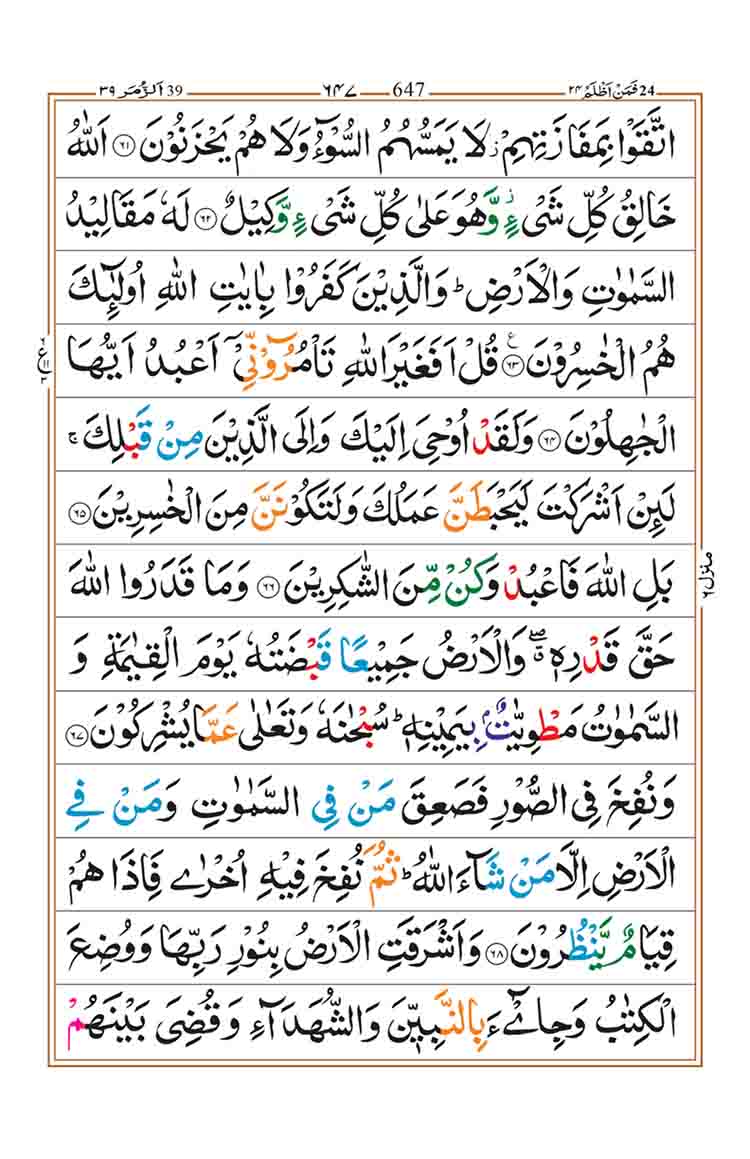 24 فَمَنْ اَظْلَمُ ۲۴ 647 ۶۴۷ 39 اَلزُّمَر ۳۹
اتَّقَوْا بِمَفَازَتِهِمْ ز لَا يَمَسُّهُمُ السُّوْٓءُ وَلَا هُمْ يَحْزَنُوْنَ ۶۱ اَللّٰهُ
خَالِقُ كُلِّ شَیْءٍ ز وَّهُوَ عَلٰى كُلِّ شَیْءٍ وَّكِيْلٌ ۶۲ لَهٗ مَقَالِيْدُ
السَّمٰوٰتِ وَالْاَرْضِ ؕ وَالَّذِيْنَ كَفَرُوْا بِاٰيٰتِ اللّٰهِ اُولٰٓئِكَ
هُمُ الْخٰسِرُوْنَ ۶۳ ع قُلْ اَفَغَيْرَ اللّٰهِ تَاْمُرُوْٓنِّیْٓ اَعْبُدُ اَيُّهَا
الْجٰهِلُوْنَ ۶۴ وَلَقَدْ اُوْحِیَ اِلَيْكَ وَاِلَى الَّذِيْنَ مِنْ قَبْلِكَ ۚ
لَئِنْ اَشْرَكْتَ لَيَحْبَطَنَّ عَمَلُكَ وَلَتَكُوْنَنَّ مِنَ الْخٰسِرِيْنَ ۶۵
بَلِ اللّٰهَ فَاعْبُدْ وَكُنْ مِّنَ الشّٰكِرِيْنَ ۶۶ وَمَا قَدَرُوا اللّٰهَ
حَقَّ قَدْرِهٖ ۖ وَالْاَرْضُ جَمِيْعًا قَبْضَتُهٗ يَوْمَ الْقِيٰمَةِ وَ
السَّمٰوٰتُ مَطْوِيّٰتٌۢ بِيَمِيْنِهٖ ؕ سُبْحٰنَهٗ وَتَعٰلٰى عَمَّا يُشْرِكُوْنَ ۶۷
وَنُفِخَ فِى الصُّوْرِ فَصَعِقَ مَنْ فِى السَّمٰوٰتِ وَمَنْ فِى
الْاَرْضِ اِلَّا مَنْ شَآءَ اللّٰهُ ؕ ثُمَّ نُفِخَ فِيْهِ اُخْرٰى فَاِذَا هُمْ
قِيَامٌ يَّنْظُرُوْنَ ۶۸ وَاَشْرَقَتِ الْاَرْضُ بِنُوْرِ رَبِّهَا وَوُضِعَ
الْكِتٰبُ وَجِایْٓءَ بِالنَّبِيّٖنَ وَالشُّهَدَآءِ وَقُضِیَ بَيْنَهُمْ
منزل ۶